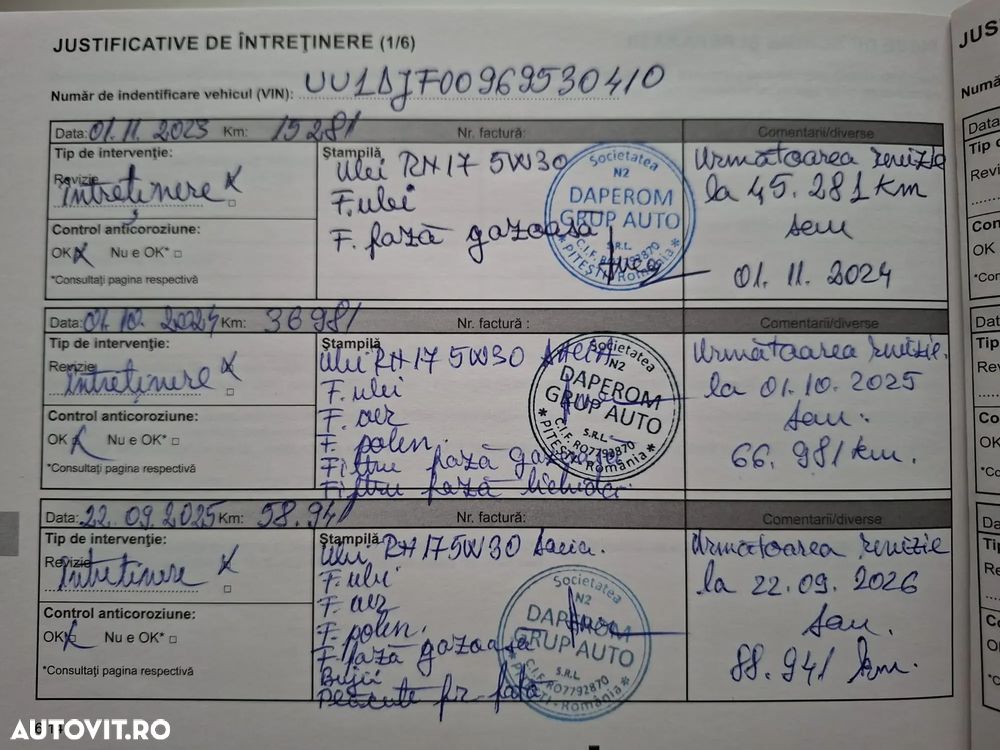 JUSTIFICATIVE DE ÎNTREȚINERE (1/6)
Număr de indentificare vehicul (VIN): UU1DJF00969530410
Data: 01.11.2023 Km: 15 281 Nr. factură: Comentarii/diverse
Tip de intervenție:
Revizie
întreținere X
Control anticoroziune:
OK X Nu e OK*
*Consultați pagina respectivă
Ștampilă
Ulei RN17 5W30
F. ulei
F. fază gazoasă
Societatea
N2
DAPEROM
GRUP AUTO
S.R.L.
C.I.F. RO7792870
* PITEȘTI - România *
Următoarea revizie
la 45.281 km
sau
01.11.2024
Data: 01.10.2024 Km: 36981 Nr. factură : Comentarii/diverse
Tip de intervenție:
Revizie
întreținere X
Control anticoroziune:
OK X Nu e OK*
*Consultați pagina respectivă
Ștampilă
Ulei RN17 5W30
F. ulei
F. aer
F. polen.
Filtru fază gazoasă
Filtru fază lichidă.
Societatea
N2
DAPEROM
GRUP AUTO
S.R.L.
C.I.F. RO7792870
* PITEȘTI - România *
Următoarea revizie.
la 01.10.2025
sau.
66.981 km.
Data: 22.09.2025 Km: 58.941 Nr. factură: Comentarii/diverse
Tip de intervenție:
Revizie
întreținere X
Control anticoroziune:
OK X Nu e OK*
*Consultați pagina respectivă
Ștampilă
Ulei RN17 5W30 Dacia.
F. ulei
F. aer
F. polen.
F. fază gazoasă
Bujii
Plăcuțe fr. față
Societatea
N2
DAPEROM
GRUP AUTO
S.R.L.
C.I.F. RO7792870
* PITEȘTI - România *
Următoarea revizie
la 22.09.2026
sau.
88.941 km.
AUTOVIT.RO